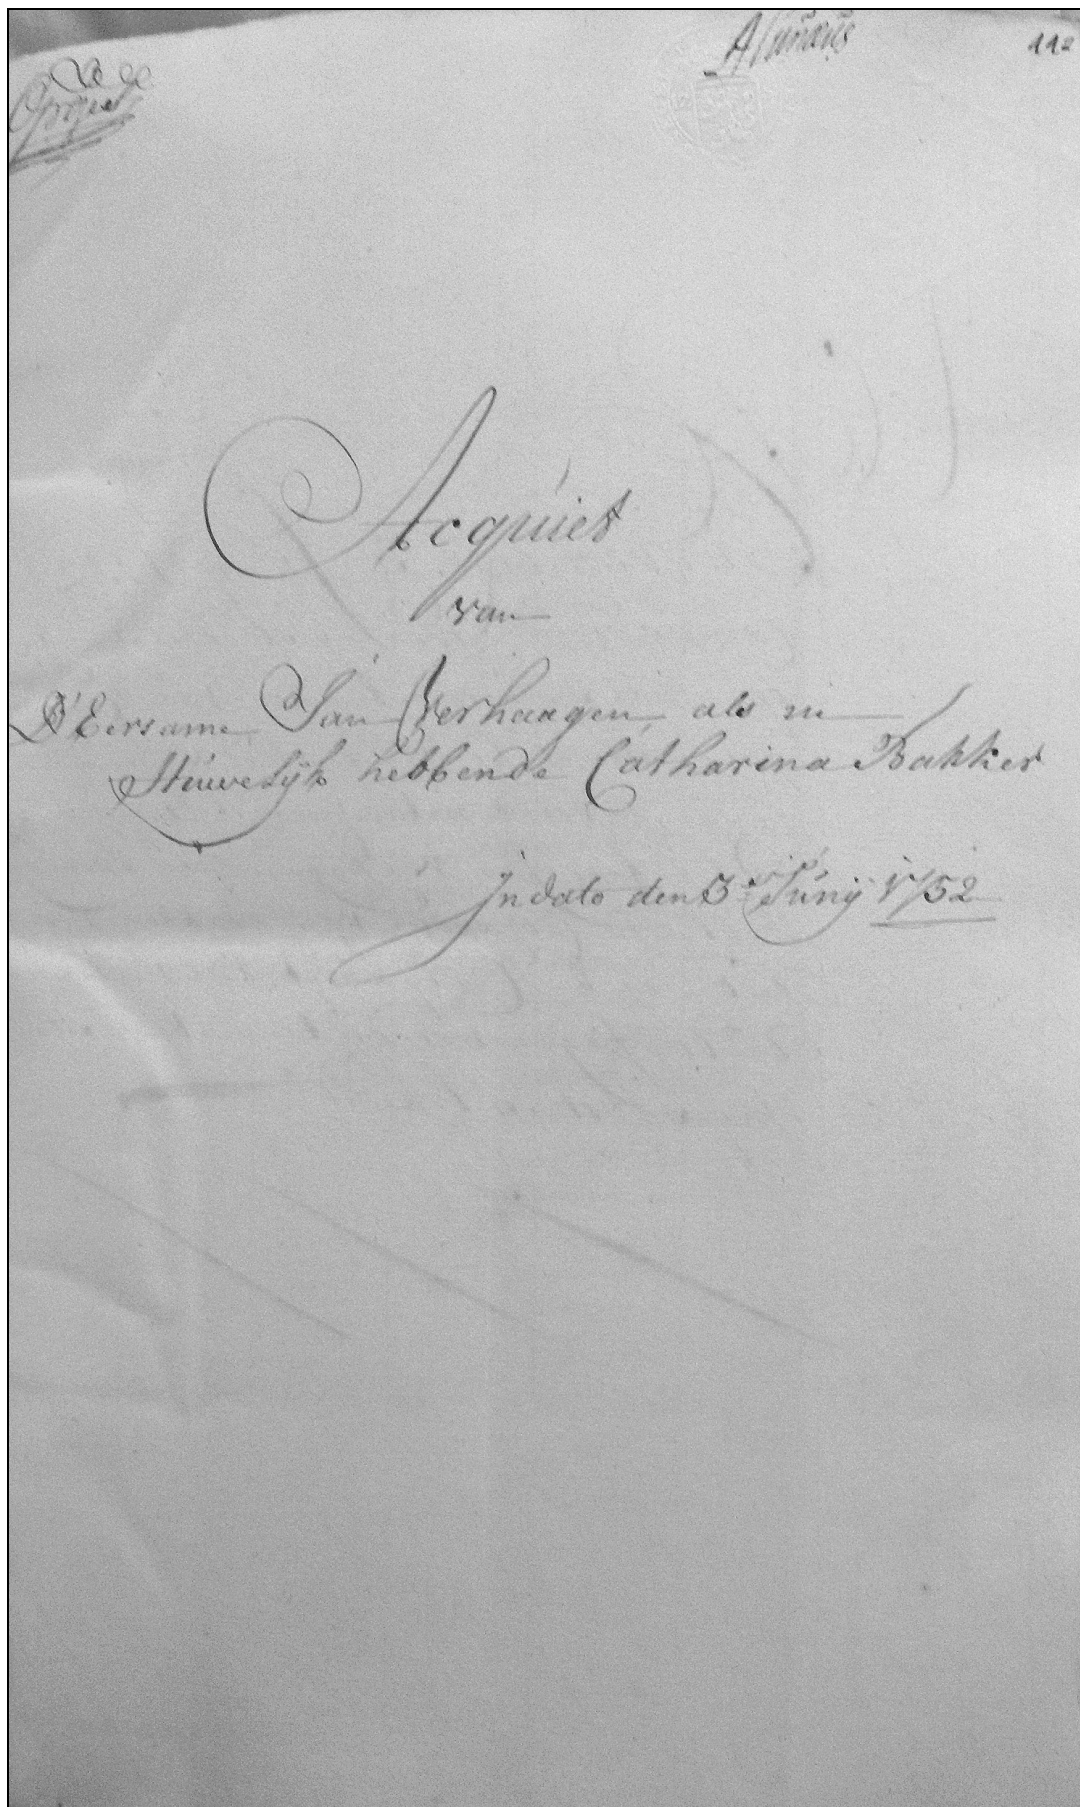 112
Acquiet
van
D'Eersame Jan Verhaagen, als in
Húwelÿk hebbende Catharina Bakker
In dato den 3.en Júnÿ 1752